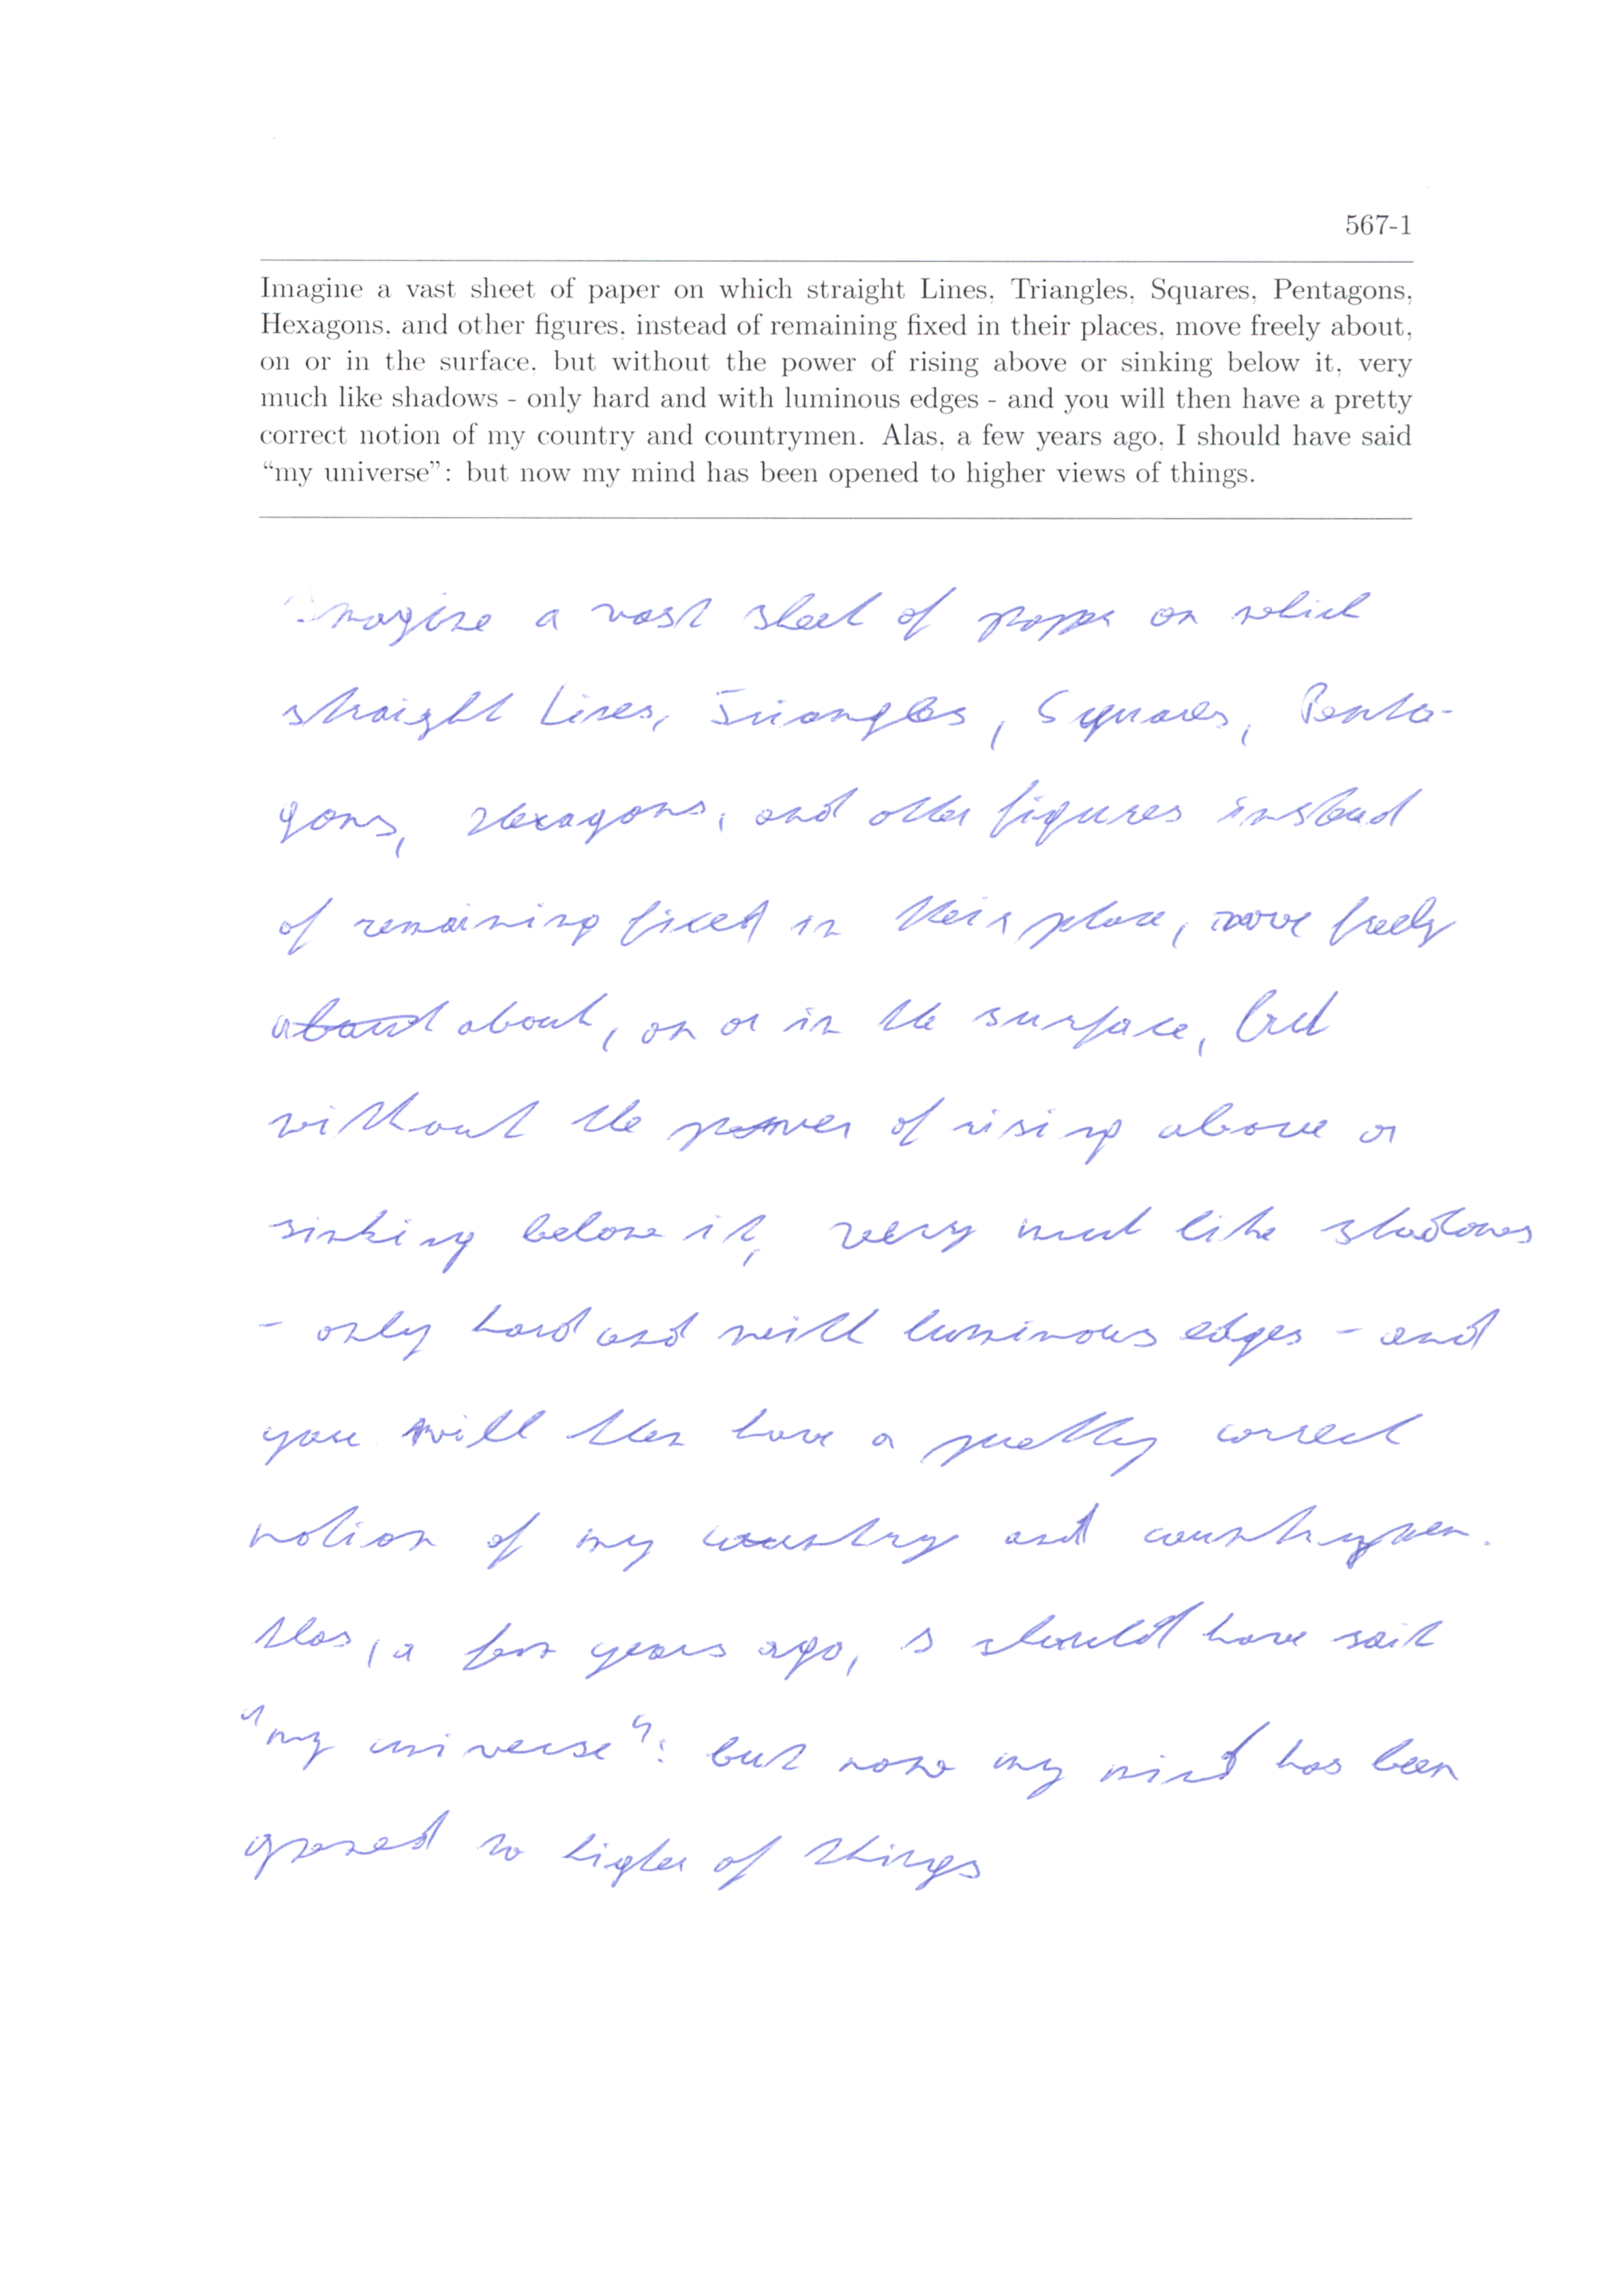 567-1
Imagine a vast sheet of paper on which straight Lines, Triangles, Squares, Pentagons,
Hexagons, and other figures, instead of remaining fixed in their places, move freely about,
on or in the surface, but without the power of rising above or sinking below it, very
much like shadows - only hard and with luminous edges - and you will then have a pretty
correct notion of my country and countrymen. Alas, a few years ago, I should have said
“my universe”: but now my mind has been opened to higher views of things.
Imagine a vast sheet of paper on which
straight Lines, Triangles, Squares, Penta-
gons, Hexagons, and other figures instead
of remaining fixed in their place, move freely
about, on or in the surface, but
without the power of rising above or
sinking below it, very much like shadows
- only hard and with luminous edges - and
you will then have a pretty correct
notion of my country and countrymen.
Alas, a few years ago, I should have said
"my universe": but now my mind has been
opened to higher of things